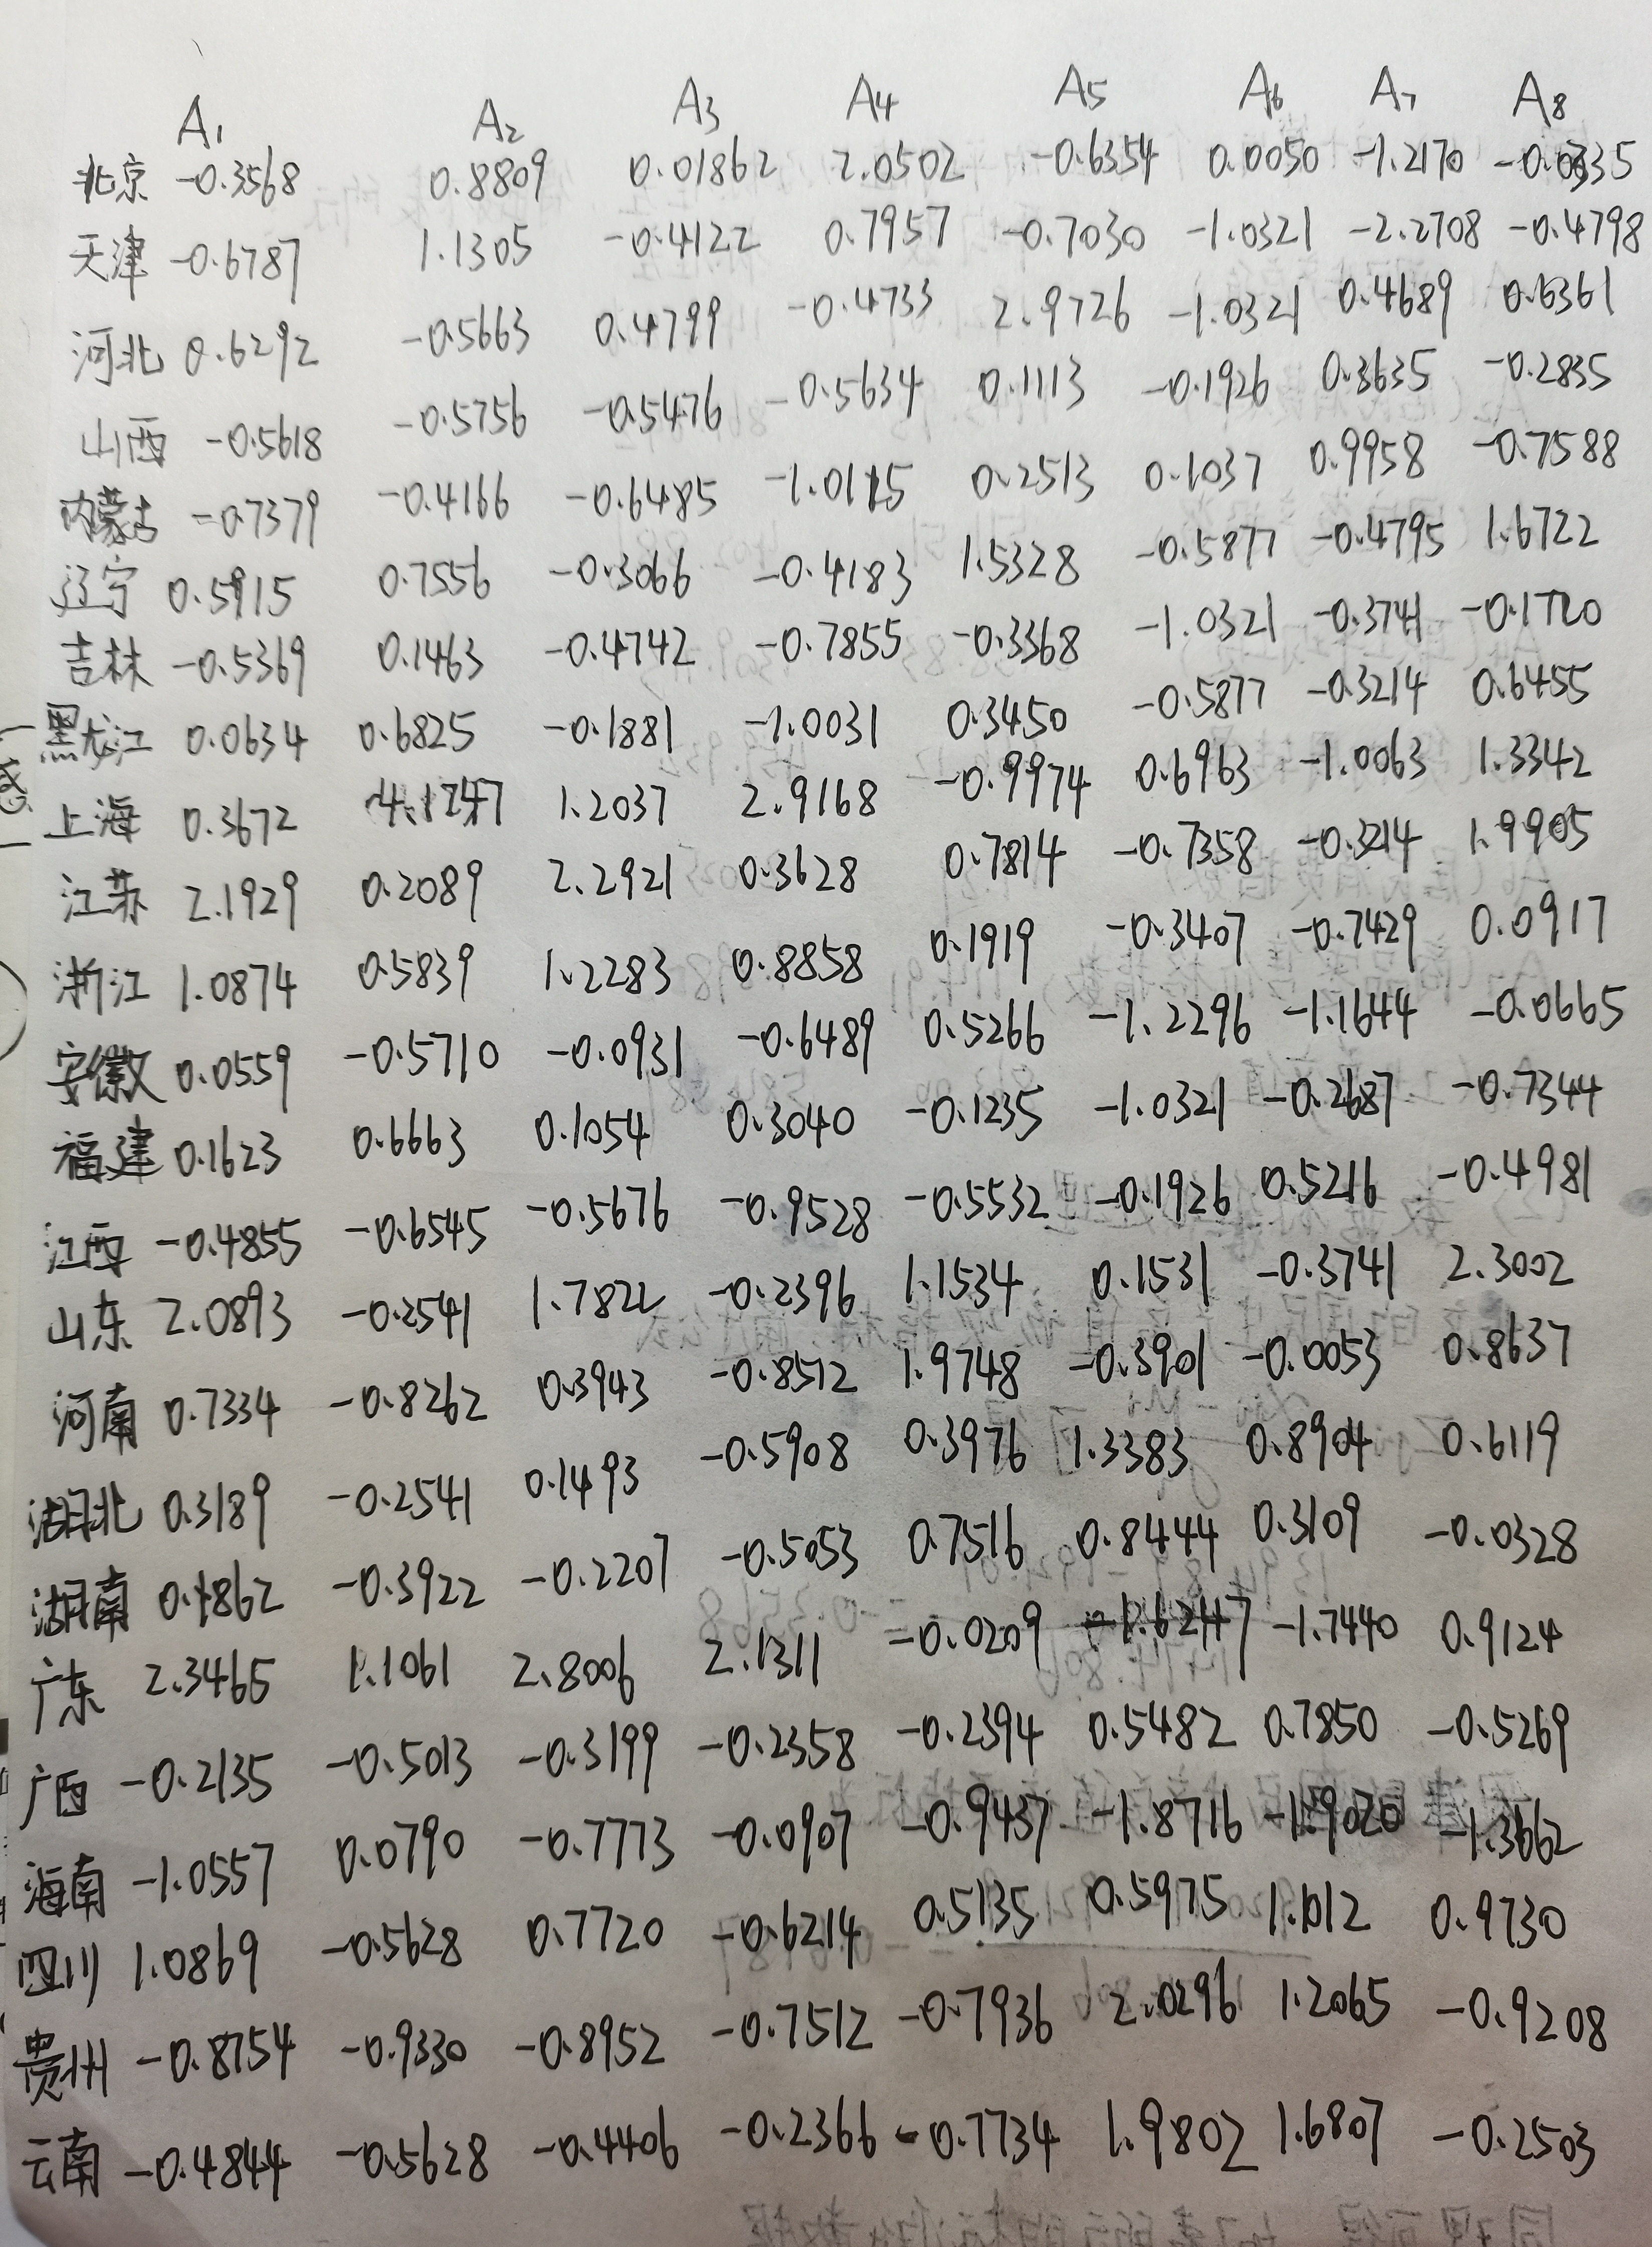 A1 A2 A3 A4 A5 A6 A7 A8
北京 -0.3568 0.8809 0.01862 2.0502 -0.6354 0.0050 -1.2170
天津 -0.6787 1.1305 -0.4122 0.7957 -0.7030 -1.0321 -2.2708 -0.4798
河北 0.6292 -0.5663 0.4799 -0.4733 2.9726 -1.0321 0.4689 0.6361
山西 -0.5618 -0.5756 -0.5476 -0.5634 0.1113 -0.1926 0.3635 -0.2835
内蒙古 -0.7379 -0.4166 -0.6485 -1.0115 0.2513 0.1037 0.9958 -0.7588
辽宁 0.5915 0.7556 -0.3066 -0.4183 1.5328 -0.5877 -0.4795 1.6722
吉林 -0.5369 0.1463 -0.4742 -0.7855 -0.3368 -1.0321 -0.3741 -0.1720
黑龙江 0.0634 0.6825 -0.1881 -1.0031 0.3450 -0.5877 -0.3214 0.6455
上海 0.3672 4.1247 1.2037 2.9168 -0.9974 0.6963 -1.0063 1.3342
江苏 2.1929 0.2089 2.2921 0.3628 0.7814 -0.7358 -0.3214 1.9905
浙江 1.0874 0.5839 1.2283 0.8858 0.1919 -0.3407 -0.7429 0.0917
安徽 0.0559 -0.5710 -0.0931 -0.6489 0.5266 -1.2296 -1.1644 -0.0665
福建 0.1623 0.6663 0.1054 0.3040 -0.1235 -1.0321 -0.2687 -0.7344
江西 -0.4855 -0.6545 -0.5676 -0.9528 -0.5532 -0.1926 0.5216 -0.4981
山东 2.0893 -0.2541 1.7822 -0.2396 1.1534 0.1531 -0.3741 2.3002
河南 0.7334 -0.8262 0.3943 -0.8512 1.9748 -0.3901 -0.0053 0.8637
湖北 0.3189 -0.2541 0.1493 -0.5908 0.3976 1.3383 0.8904 0.6119
湖南 0.1862 -0.3922 -0.2207 -0.5053 0.7516 0.8444 0.3109 -0.0328
广东 2.3465 1.1061 2.8006 2.1311 -0.0209 -1.6247 -1.7440 0.9124
广西 -0.2135 -0.5013 -0.3199 -0.2358 -0.2394 0.5482 0.7850 -0.5269
海南 -1.0557 0.0790 -0.7773 -0.0907 -0.9437 -1.8716 -1.9020 -1.3662
四川 1.0869 -0.5628 0.7720 -0.6214 0.5135 0.5975 1.1012 0.9730
贵州 -0.8754 -0.9330 -0.8952 -0.7512 -0.7936 2.0296 1.2065 -0.9208
云南 -0.4844 -0.5628 -0.4406 -0.2366 -0.7734 1.9802 1.6807 -0.2503